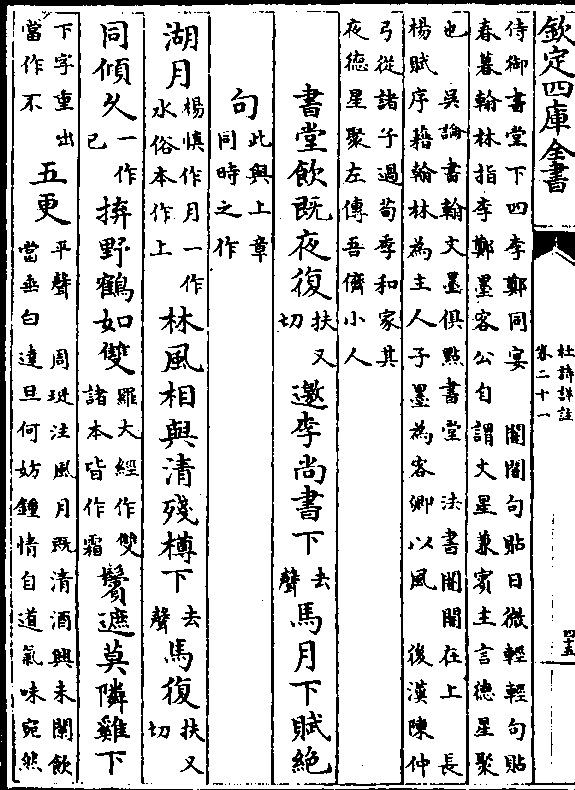 欽定四庫全書
杜詩詳註
卷二十一
四十五
侍御書堂下四李鄭同宴　闇闇句貼日微輕輕句貼
春暮翰林指李鄭墨客公自謂文星兼賓主言德星聚
也　吳論書翰文墨俱點書堂　法書闇闇在上　長
楊賦序藉翰林為主人子墨為客卿以風　後漢陳仲
弓從諸子過荀季和家其
夜德星聚左傳吾儕小人
書堂飲既夜復扶又切邀李尚書下去聲馬月下賦絕
句此與上章同時之作
湖月楊慎作月一作水俗本作上林風相與清殘樽下去聲馬復扶又切
同傾久一作已拚野鶴如雙羅大經作雙諸本皆作霜鬢遮莫隣雞下
下字重出當作不五更平聲　周珽注風月既清酒興未闌飲當垂白達旦何妨鍾情自道氣味宛然